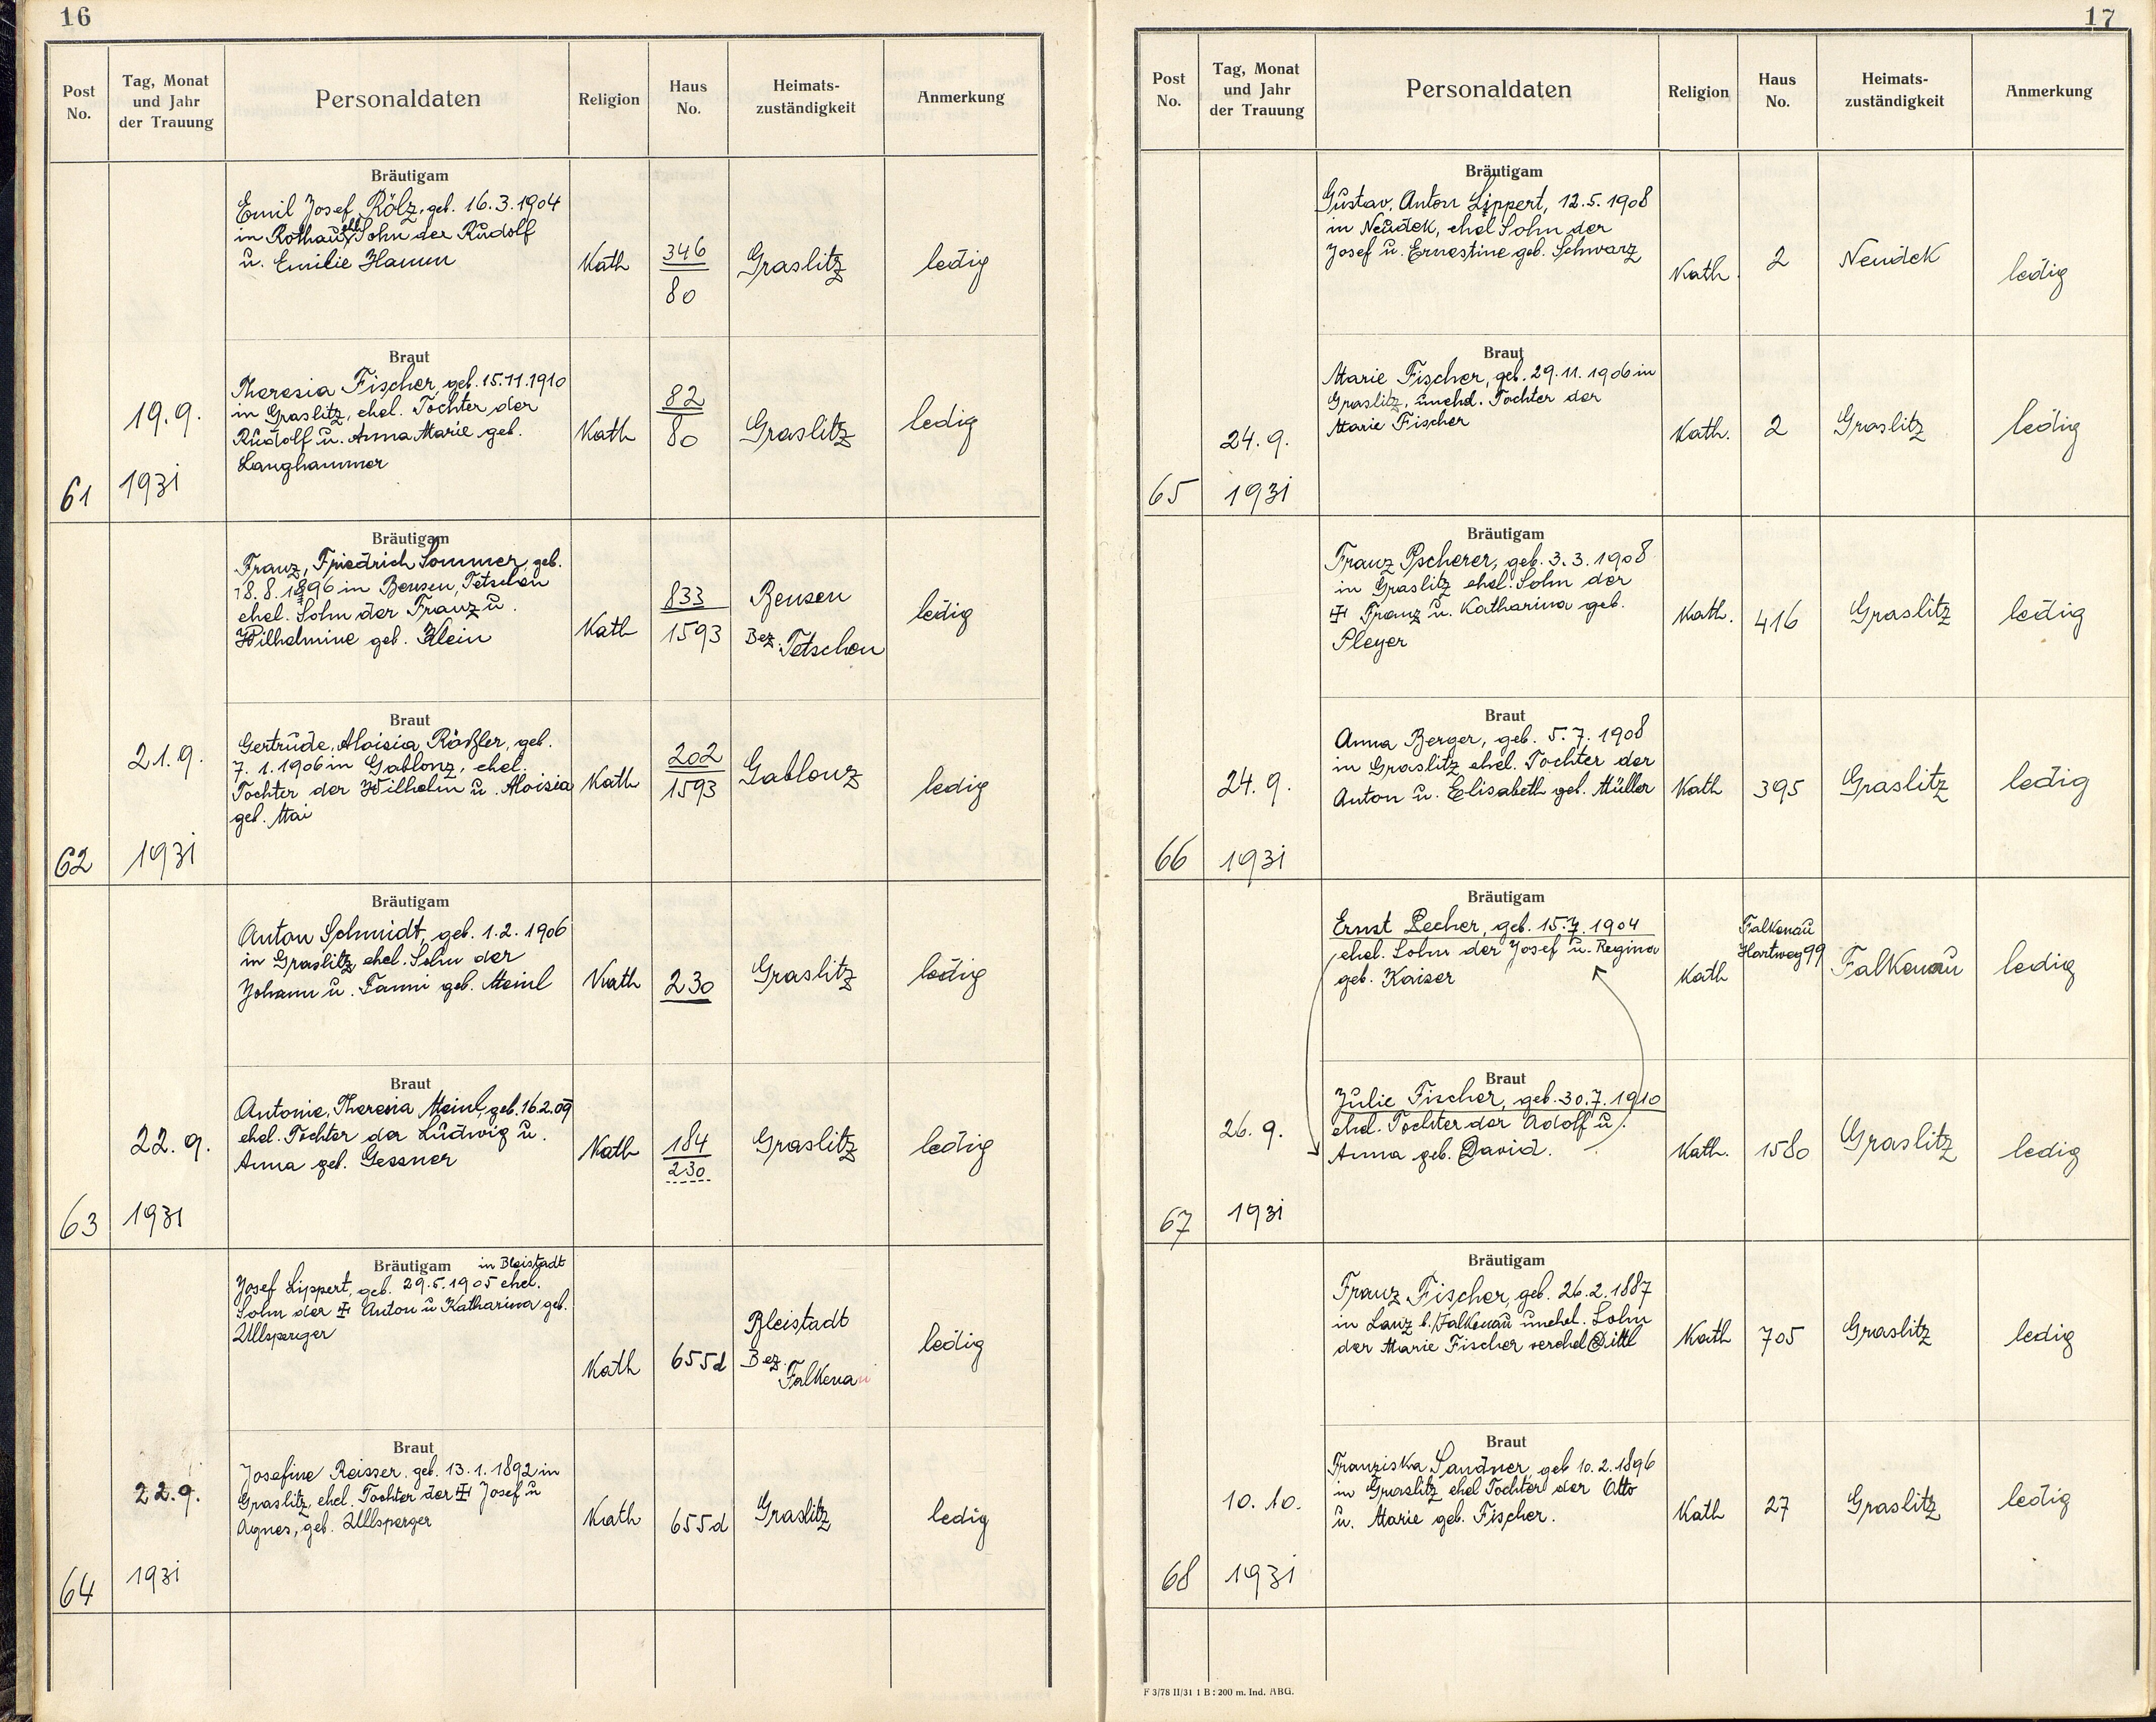 16
Post No.
Tag, Monat und Jahr der Trauung
Personaldaten
Religion
Haus No.
Heimats-zuständigkeit
Anmerkung
Bräutigam
Emil Josef Rölz, geb. 16.3.1904
in Rothau, ehl. Sohn der Rudolf
u. Emilie Hamm
Kath
346
80
Graslitz
ledig
Braut
Theresia Fischer, geb. 15.11.1910
in Graslitz, ehel. Tochter der
Rudolf u. Anna Marie geb.
Langhammer
Kath
82
80
Graslitz
ledig
19.9.
61
1931
Bräutigam
Franz, Friedrich Sommer, geb.
18.8.1896 in Bensen, Tetschen
ehel. Sohn der Franz u.
Wilhelmine geb. Klein
Kath
833
1593
Bensen
Bez. Tetschen
ledig
Braut
Gertrude, Aloisia Rößler, geb.
7.1.1906 in Gablonz, ehel.
Tochter der Wilhelm u. Aloisia
geb. Mai
Kath
202
1593
Gablonz
ledig
21.9.
62
1931
Bräutigam
Anton Schmidt, geb. 1.2.1906
in Graslitz, ehel. Sohn der
Johann u. Fanni geb. Meinl
Kath
230
Graslitz
ledig
Braut
Antonie, Theresia Meinl, geb. 16.2.09
ehel. Tochter der Ludwig u.
Anna geb. Gessner
Kath
184
230
Graslitz
ledig
22.9.
63
1931
Bräutigam in Bleistadt
Josef Lippert, geb. 29.5.1905 ehel.
Sohn der ‡ Anton u Katharina geb.
Ullsperger
Kath
655d
Bleistadt
Bez. Falkenau
ledig
Braut
Josefine Reisser, geb. 13.1.1892 in
Graslitz, ehel. Tochter der ‡ Josef u
Agnes, geb. Ullsperger
Kath
655d
Graslitz
ledig
22.9.
64
1931
17
Post No.
Tag, Monat und Jahr der Trauung
Personaldaten
Religion
Haus No.
Heimats-zuständigkeit
Anmerkung
Bräutigam
Gustav, Anton Lippert, 12.5.1908
in Neudek, ehel Sohn der
Josef u. Ernestine geb. Schwarz
Kath.
2
Neudek
ledig
Braut
Marie Fischer, geb. 29.11.1906 in
Graslitz, unehel. Tochter der
Marie Fischer
Kath.
2
Graslitz
ledig
24.9.
65
1931
Bräutigam
Franz Pscherer, geb. 3.3.1908
in Graslitz ehel. Sohn der
‡ Franz u. Katharina geb.
Pleyer
Kath.
416
Graslitz
ledig
Braut
Anna Berger, geb. 5.7.1908
in Graslitz ehel. Tochter der
Anton u. Elisabeth geb. Müller
Kath
395
Graslitz
ledig
24.9.
66
1931
Bräutigam
Ernst Lecher, geb. 15.7.1904
ehel. Sohn der Josef u. Regina
geb. Kaiser
Kath
Falkenau
Hartweg 99
Falkenau
ledig
Braut
Julie Fischer, geb. 30.7.1910
ehel. Tochter der Adolf u.
Anna geb. David.
Kath.
1580
Graslitz
ledig
26.9.
67
1931
Bräutigam
Franz Fischer, geb. 26.2.1887
in Lanz b./Falkenau unehel. Sohn
der Marie Fischer verehel Dittl
Kath
705
Graslitz
ledig
Braut
Franziska Sandner, geb 10.2.1896
in Graslitz ehel Tochter der Otto
u. Marie geb. Fischer.
Kath
27
Graslitz
ledig
10.10.
68
1931
F 3/78 II/31 1 B : 200 m. Ind. ABG.